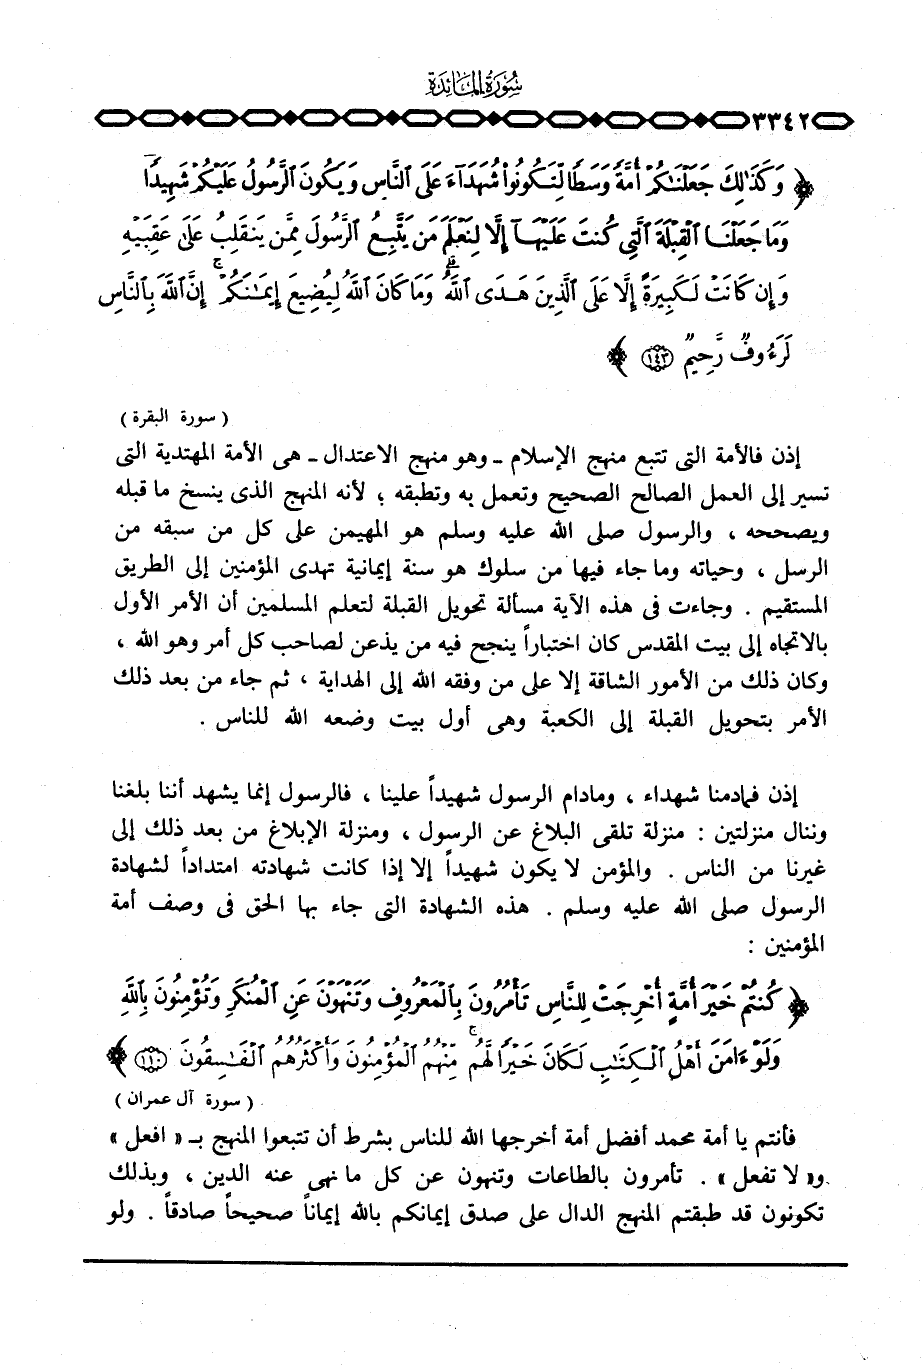 سُورَةُ المَائِدَة
٣٣٤٢
﴿ وَكَذَٰلِكَ جَعَلْنَٰكُمْ أُمَّةً وَسَطًا لِّتَكُونُوا۟ شُهَدَآءَ عَلَى ٱلنَّاسِ وَيَكُونَ ٱلرَّسُولُ عَلَيْكُمْ شَهِيدًا
وَمَا جَعَلْنَا ٱلْقِبْلَةَ ٱلَّتِى كُنتَ عَلَيْهَآ إِلَّا لِنَعْلَمَ مَن يَتَّبِعُ ٱلرَّسُولَ مِمَّن يَنقَلِبُ عَلَىٰ عَقِبَيْهِ
وَإِن كَانَتْ لَكَبِيرَةً إِلَّا عَلَى ٱلَّذِينَ هَدَى ٱللَّهُ ۗ وَمَا كَانَ ٱللَّهُ لِيُضِيعَ إِيمَٰنَكُمْ ۚ إِنَّ ٱللَّهَ بِٱلنَّاسِ
لَرَءُوفٌ رَّحِيمٌ ۝١٤٣ ﴾
( سورة البقرة )
إذن فالأمة التى تتبع منهج الإسلام ـ وهو منهج الاعتدال ـ هى الأمة المهتدية التى
تسير إلى العمل الصالح الصحيح وتعمل به وتطبقه ؛ لأنه المنهج الذى ينسخ ما قبله
ويصححه ، والرسول صلى الله عليه وسلم هو المهيمن على كل من سبقه من
الرسل ، وحياته وما جاء فيها من سلوك هو سنة إيمانية تهدى المؤمنين إلى الطريق
المستقيم . وجاءت فى هذه الآية مسألة تحويل القبلة لتعلم المسلمين أن الأمر الأول
بالاتجاه إلى بيت المقدس كان اختباراً ينجح فيه من يذعن لصاحب كل أمر وهو الله ،
وكان ذلك من الأمور الشاقة إلا على من وفقه الله إلى الهداية ، ثم جاء من بعد ذلك
الأمر بتحويل القبلة إلى الكعبة وهى أول بيت وضعه الله للناس .
إذن فمادمنا شهداء ، ومادام الرسول شهيداً علينا ، فالرسول إنما يشهد أننا بلغنا
وننال منزلتين : منزلة تلقى البلاغ عن الرسول ، ومنزلة الإبلاغ من بعد ذلك إلى
غيرنا من الناس . والمؤمن لا يكون شهيداً إلا إذا كانت شهادته امتداداً لشهادة
الرسول صلى الله عليه وسلم . هذه الشهادة التى جاء بها الحق فى وصف أمة
المؤمنين :
﴿ كُنتُمْ خَيْرَ أُمَّةٍ أُخْرِجَتْ لِلنَّاسِ تَأْمُرُونَ بِٱلْمَعْرُوفِ وَتَنْهَوْنَ عَنِ ٱلْمُنكَرِ وَتُؤْمِنُونَ بِٱللَّهِ
وَلَوْ ءَامَنَ أَهْلُ ٱلْكِتَٰبِ لَكَانَ خَيْرًا لَّهُم ۚ مِّنْهُمُ ٱلْمُؤْمِنُونَ وَأَكْثَرُهُمُ ٱلْفَٰسِقُونَ ۝١١٠ ﴾
( سورة آل عمران )
فأنتم يا أمة محمد أفضل أمة أخرجها الله للناس بشرط أن تتبعوا المنهج بـ « افعل »
و« لا تفعل » . تأمرون بالطاعات وتنهون عن كل ما نهى عنه الدين ، وبذلك
تكونون قد طبقتم المنهج الدال على صدق إيمانكم بالله إيماناً صحيحاً صادقاً . ولو